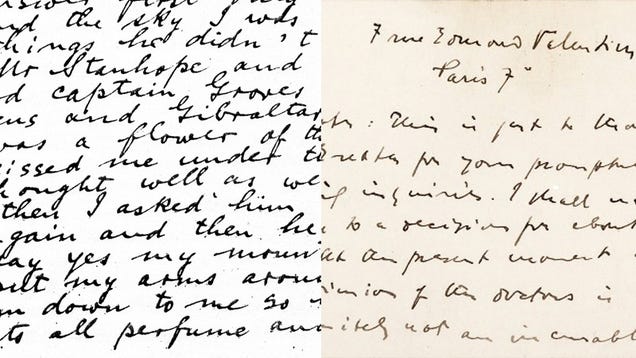 first
nd the sky I was
things he didn't
Mr Stanhope and
d captain Groves
cus and Gibraltar
was a flower of th
issed me under t
hought well as we
then I asked him
gain and then he
ay yes my moun
put my arms aroun
m down to me so
ts all perfume an
7 rue Edmond Valentin
Paris 7e
: This is just to tha
for your prompt
inquiries. I shall
to a decision for about
at the present moment
inion of the doctors is
itely not an incurabl